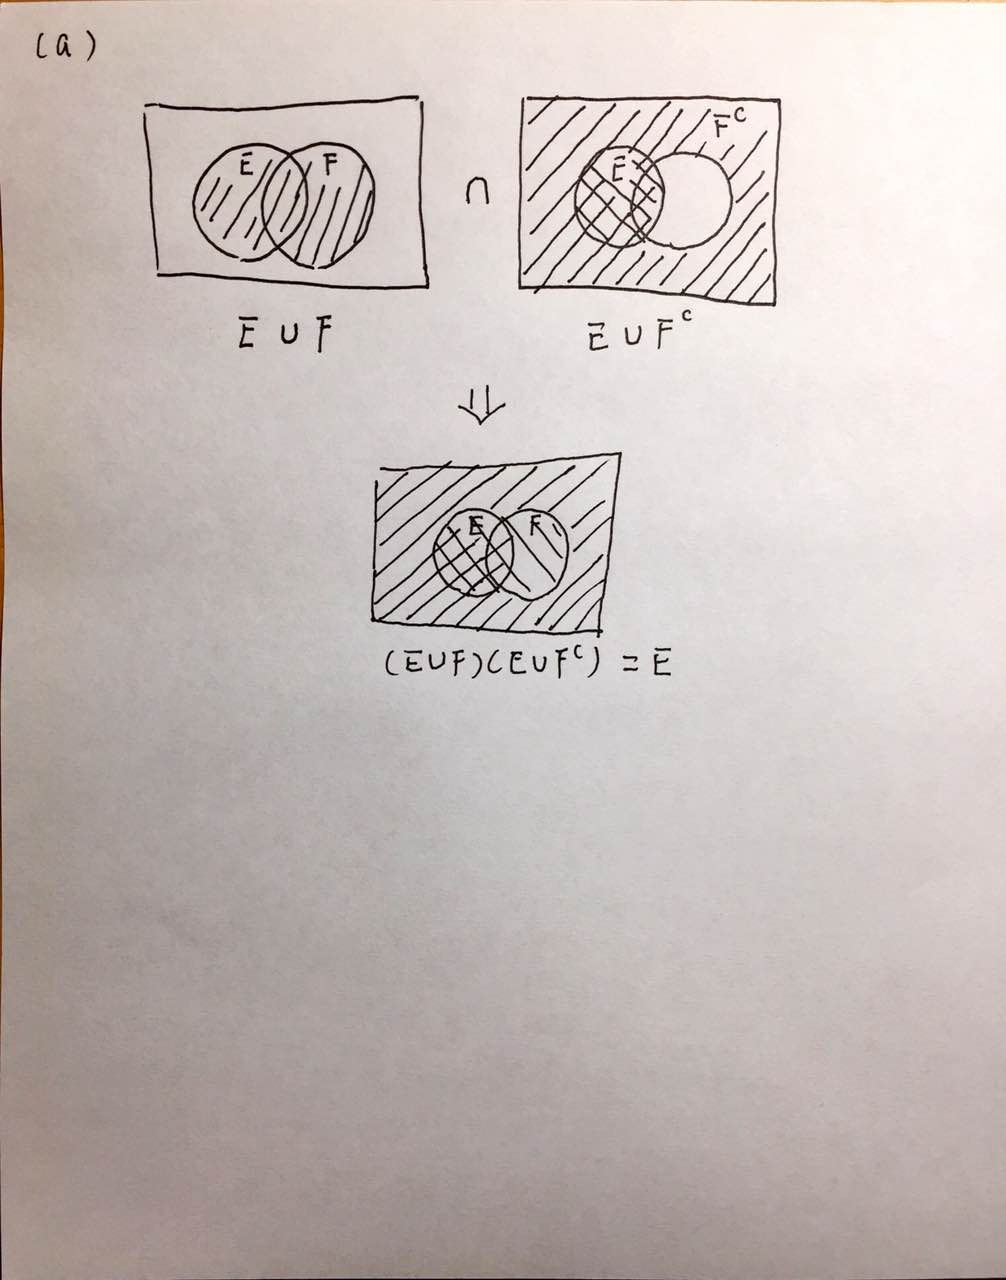 (a)
E F ∩ E F^C
E ∪ F E ∪ F^C
⇓
E F
(E∪F)(E∪F^C) = E